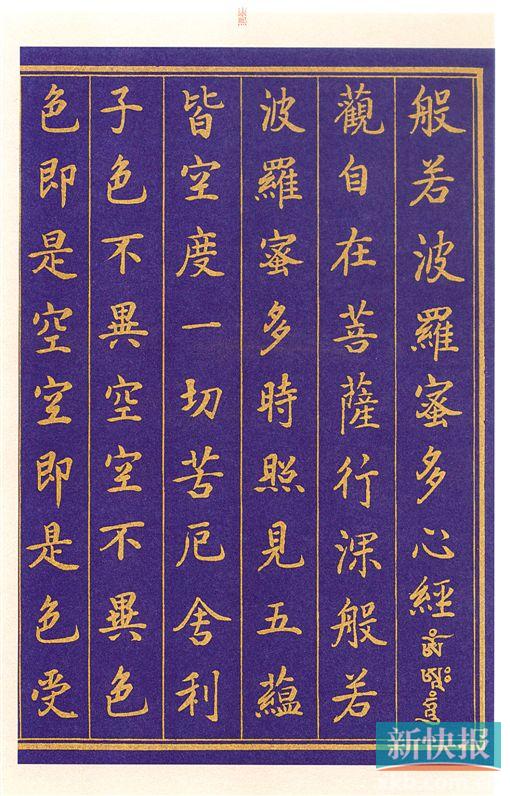 康熙
般若波羅蜜多心經 ཨོཾ ཨཱཿ ཧཱུྃ
觀自在菩薩行深般若
波羅蜜多時照見五蘊
皆空度一切苦厄舍利
子色不異空空不異色
色即是空空即是色受
新快报